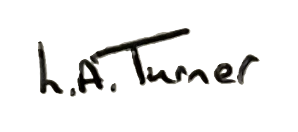 L.A. Turner